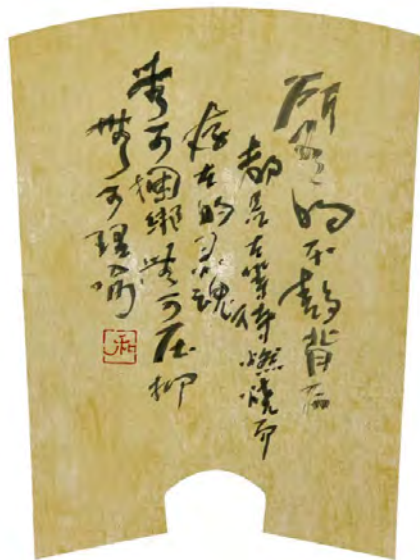 所有的平静背后
都是在等待燃烧而
存在的灵魂
無可捆绑無可压抑
無可理喻
和